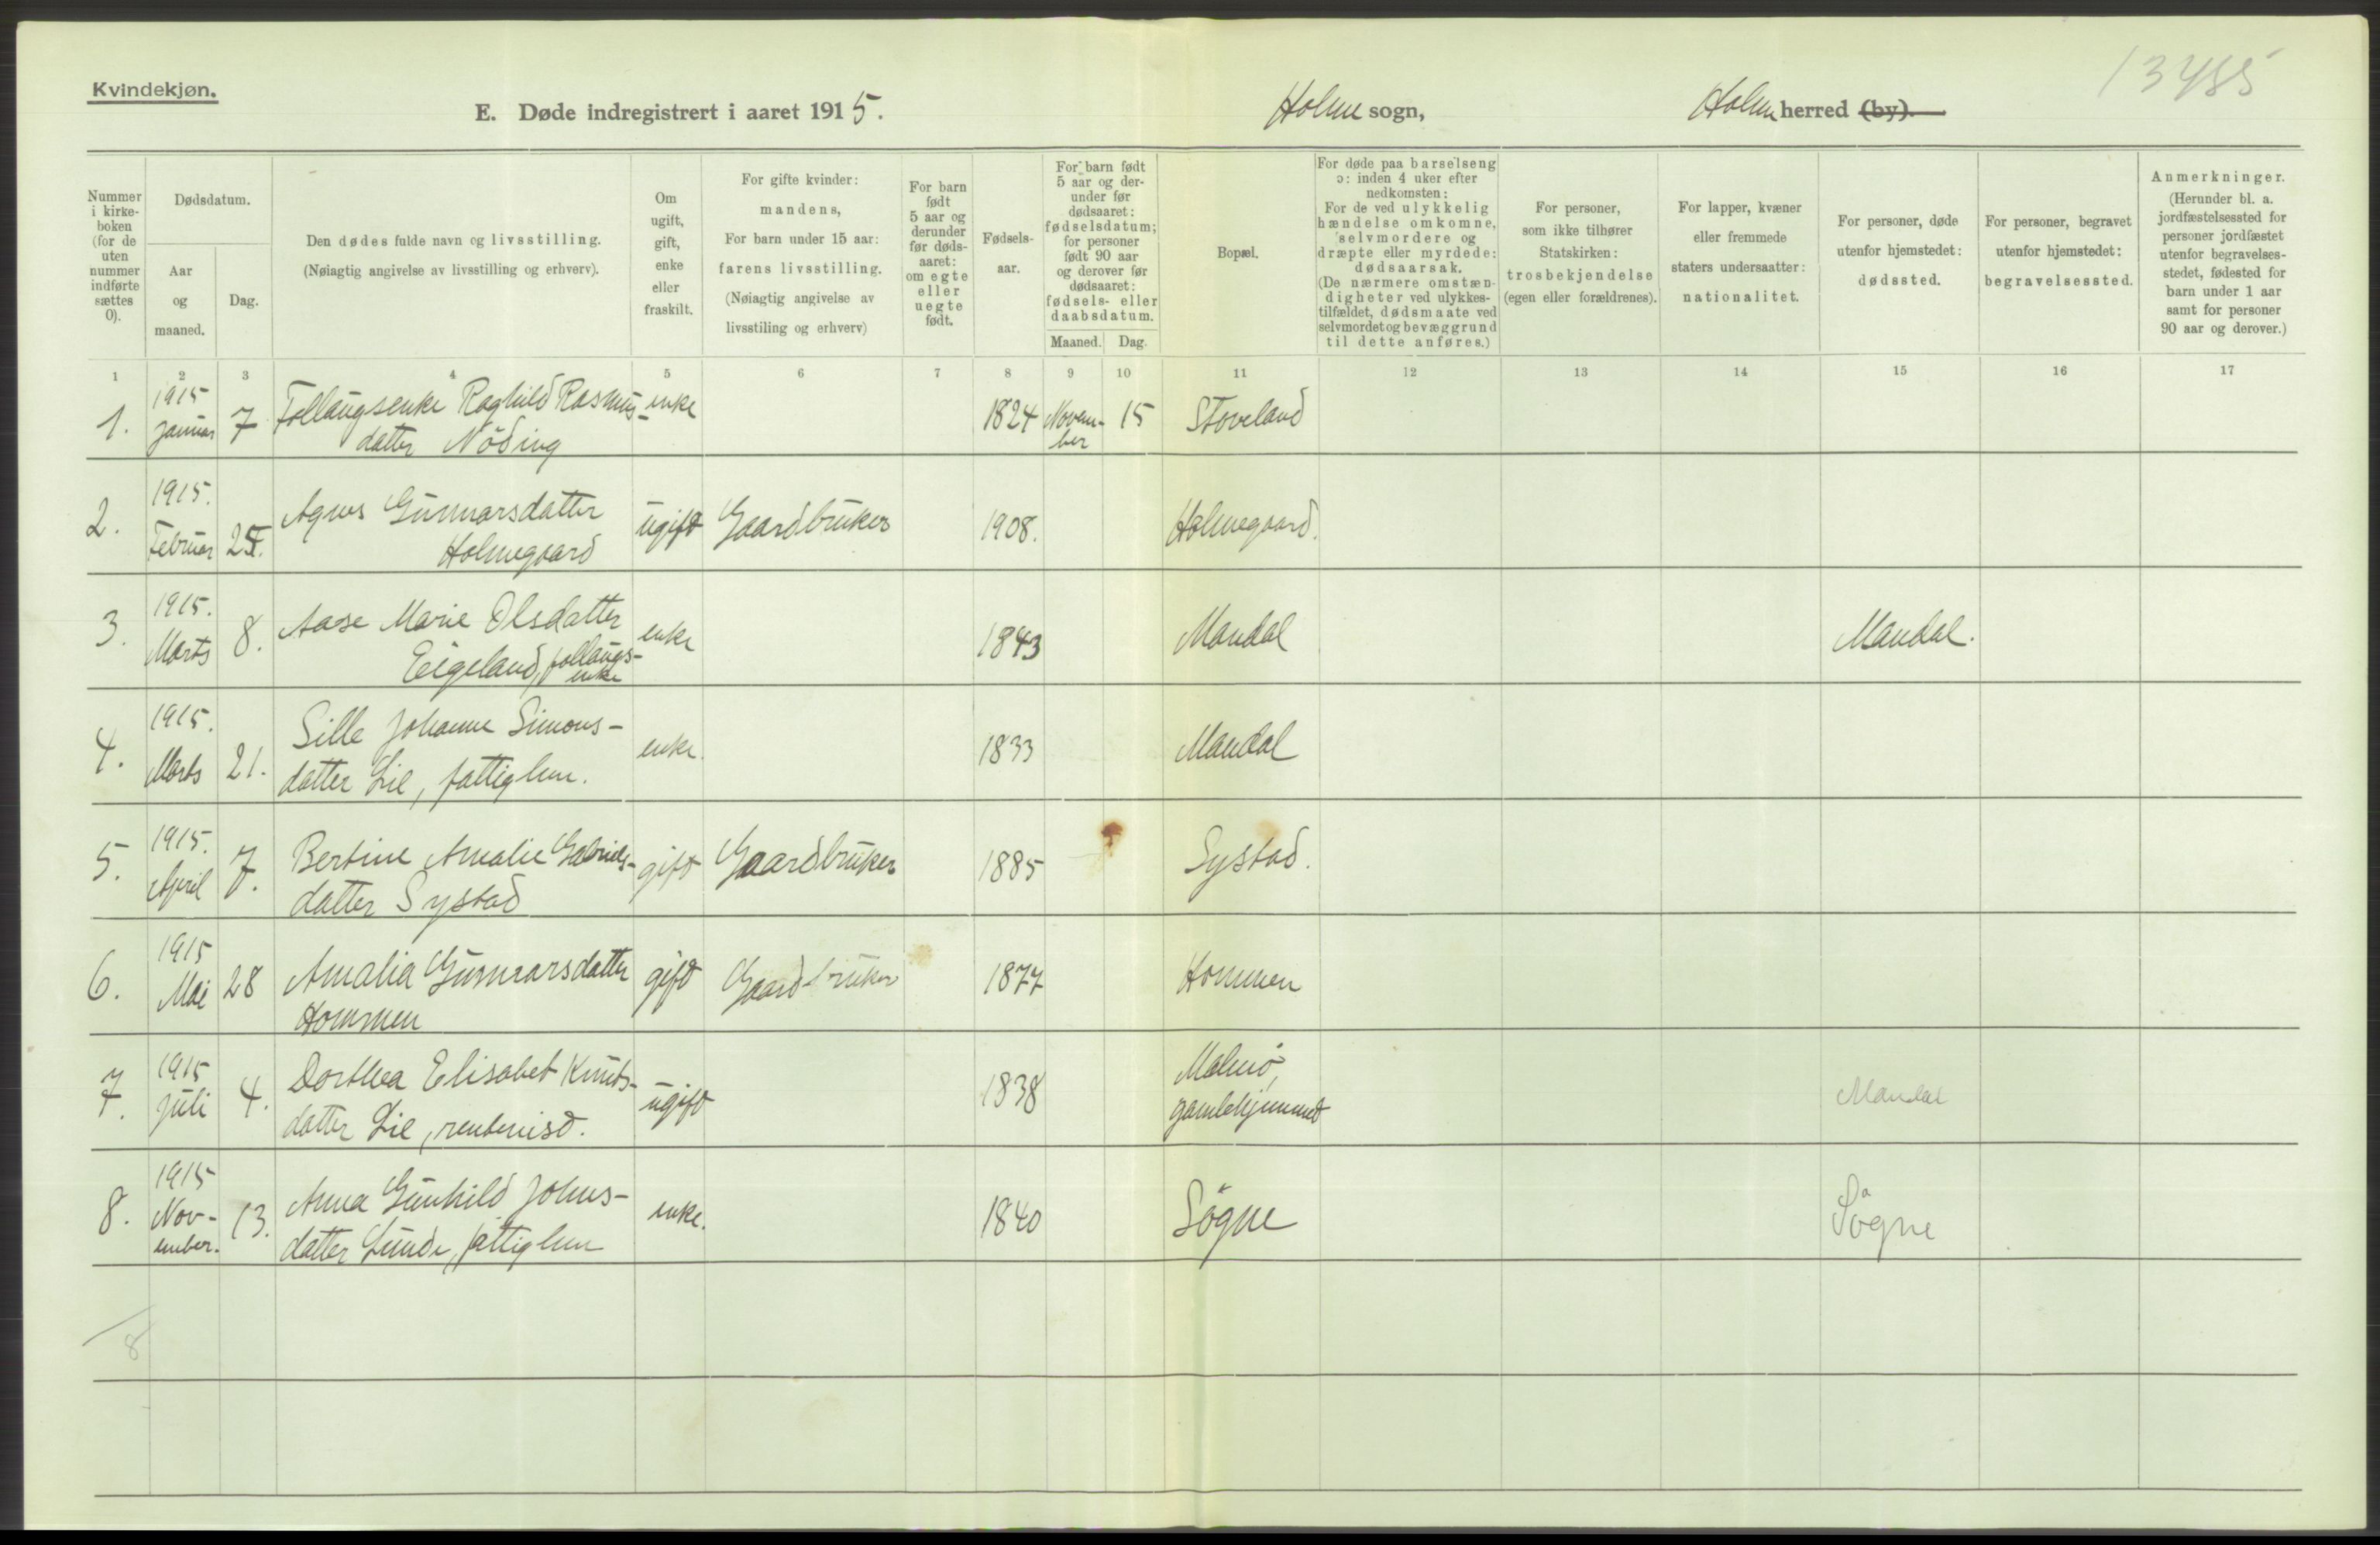 Kvindekjøn.
13485
E. Døde indregistrert i aaret 1915.
Holme sogn,
Holme herred (by).
Nummer i kirke-boken (for de uten nummer indførte sættes 0).
Dødsdatum.
Aar og maaned.
Dag.
Den dødes fulde navn og livsstilling.
(Nøiagtig angivelse av livsstilling og erhverv).
Om ugift, gift, enke eller fraskilt.
For gifte kvinder:
mandens,
For barn under 15 aar:
farens livsstilling.
(Nøiagtig angivelse av
livsstiling og erhverv)
For barn født 5 aar og derunder før døds-aaret: om egte eller uegte født.
Fødsels-aar.
For barn født 5 aar og der-under før dødsaaret: fødselsdatum; for personer født 90 aar og derover før dødsaaret: fødsels- eller daabsdatum.
Maaned. Dag.
Bopæl.
For døde paa barselseng
ɔ: inden 4 uker efter
nedkomsten:
For de ved ulykkelig
hændelse omkomne,
selvmordere og
dræpte eller myrdede:
dødsaarsak.
(De nærmere omstæn-
digheter ved ulykkes-
tilfældet, dødsmaate ved
selvmordet og bevæggrund
til dette anføres.)
For personer,
som ikke tilhører
Statskirken:
trosbekjendelse
(egen eller forældrenes).
For lapper, kvæner
eller fremmede
staters undersaatter:
nationalitet.
For personer, døde
utenfor hjemstedet:
dødssted.
For personer, begravet
utenfor hjemstedet:
begravelsessted.
Anmerkninger.
(Herunder bl. a.
jordfæstelsessted for
personer jordfæstet
utenfor begravelses-
stedet, fødested for
barn under 1 aar
samt for personer
90 aar og derover.)
1 2 3 4 5 6 7 8 9 10 11 12 13 14 15 16 17
1. 1915 Januar 7 Follaugsenke Raghild Rasmus- enke 1824 Novem- 15 Stoveland
datter Nöding ber
2. 1915. Februar 25. Agnes Gunnarsdatter ugift Gaardbruker 1908. Holmegaard.
Holmegaard
3. 1915. Marts 8. Aase Marie Olsdatter enke 1843 Mandal Mandal.
Eigeland, follaugs-
enke
4. 1915. Marts 21. Sille Johanne Simons- enke. 1833 Mandal
datter Lie, fattiglem.
5. 1915. April 7. Bertine Amalie Gabriels- gift Gaardbruker 1885 Systad.
datter Systad
6. 1915 Mai 28 Amalia Gunnarsdatter gift Gaardbruker 1877 Hommen
Hommen
7. 1915 Juli 4. Dorthea Elisabet Knuts- ugift 1838 Malmö, Mandal
datter Lie, rentenist. gamlehjemmet
8. 1915 Nov- 13. Anna Gunhild Johns- enke. 1840 Sögne Sögne
ember. datter Lunde, fattiglem
8